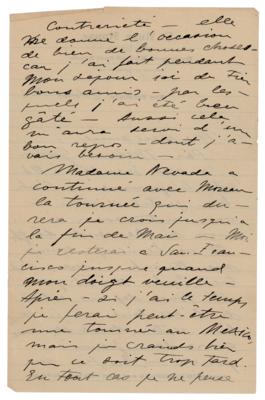 Contrariété — elle
me donne l'occasion
de bien de bonnes choses
car j'ai fait pendant
mon séjour ici de très
bons amis — par les-
quels j'ai été bien
gâté — aussi cela
m'aura servi d'un
bon repos — dont j'a-
vais besoin —
Madame Nevada a
continué avec Moreau
la tournée qui du-
rera je crois jusqu'à
la fin de Mai — Moi
je resterai à San Fran-
cisco jusque quand
mon doigt veuille —
Après — si j'ai le temps
je ferai peut-être
une tournée au Mexico
mais je crains bien
que ce soit trop tard.
En tout cas je ne pense